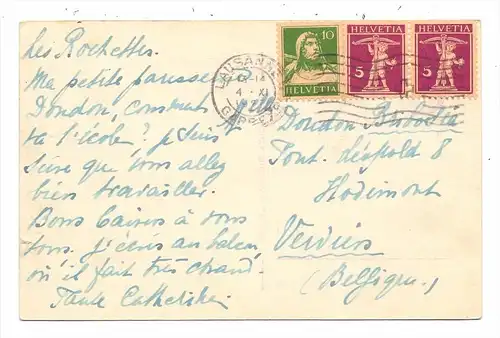 Les Rochettes.
Ma petite paresseuse
Doudou, comment
va l'école? je suis
sûre que vous allez
bien travailler.
Bons baisers à vous
tous. j'écris au balcon,
où il fait très chaud.
Tante Catherine
10
HELVETIA
HELVETIA
5
HELVETIA
5
LAUSANNE
4 XI
GARE
Mlle
Doudou
Pont. Léopold 8
Hodimont
Verviers
(Belgique)